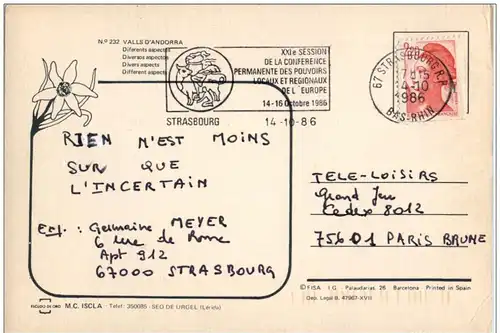 N.º 232 VALLS D'ANDORRA
Diferents aspectes
Diversos aspectos
Divers aspects
Different aspects
XXIe SESSION
DE LA CONFERENCE
PERMANENTE DES POUVOIRS
LOCAUX ET REGIONAUX
DE L'EUROPE
14-16 Octobre 1986
STRASBOURG
14-10-86
67 STRASBOURG R.P.
17H15
14-10
1986
BAS-RHIN
2,20
RIEN N'EST MOINS
SUR QUE
L'INCERTAIN
Exp. : Germaine MEYER
6 rue de Rome
Apt 912
67000 STRASBOURG
TELE-LOISIRS
Grand Jeu
Cedex 8012
75601 PARIS BRUNE
ESCUDO DE ORO
M.C. ISCLA - Telef. 350085 - SEO DE URGEL (Lérida)
© FISA I.G. Palaudarias, 26 Barcelona - Printed in Spain
Dep. Legal B. 47967-XVII